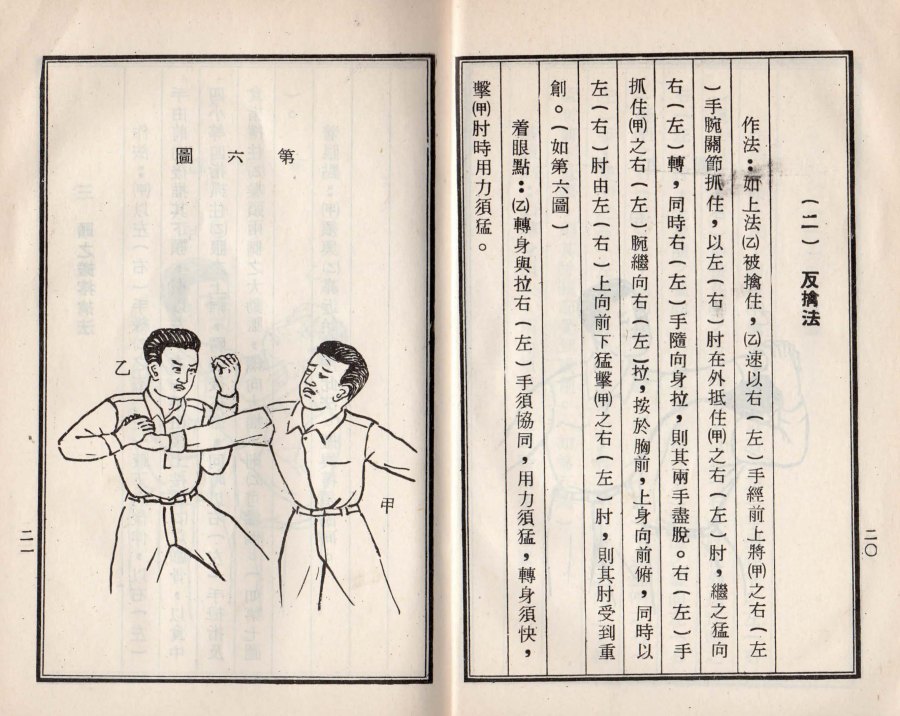 (二)　反擒法
作法：如上法㈡被擒住，㈡速以右(左)手經前上將㈙之右(左
)手腕關節抓住，以左(右)肘在外抵住㈙之右(左)肘，繼之猛向
右(左)轉，同時右(左)手隨向身拉，則其兩手盡脫。右(左)手
抓住㈙之右(左)腕繼向右(左)拉，按於胸前，上身向前俯，同時以
左(右)肘由左(右)上向前下猛擊㈙之右(左)肘，則其肘受到重
創。(如第六圖)
着眼點：㈡轉身與拉右(左)手須協同，用力須猛，轉身須快，
擊㈙肘時用力須猛。
二〇
第六圖
乙
甲
二一